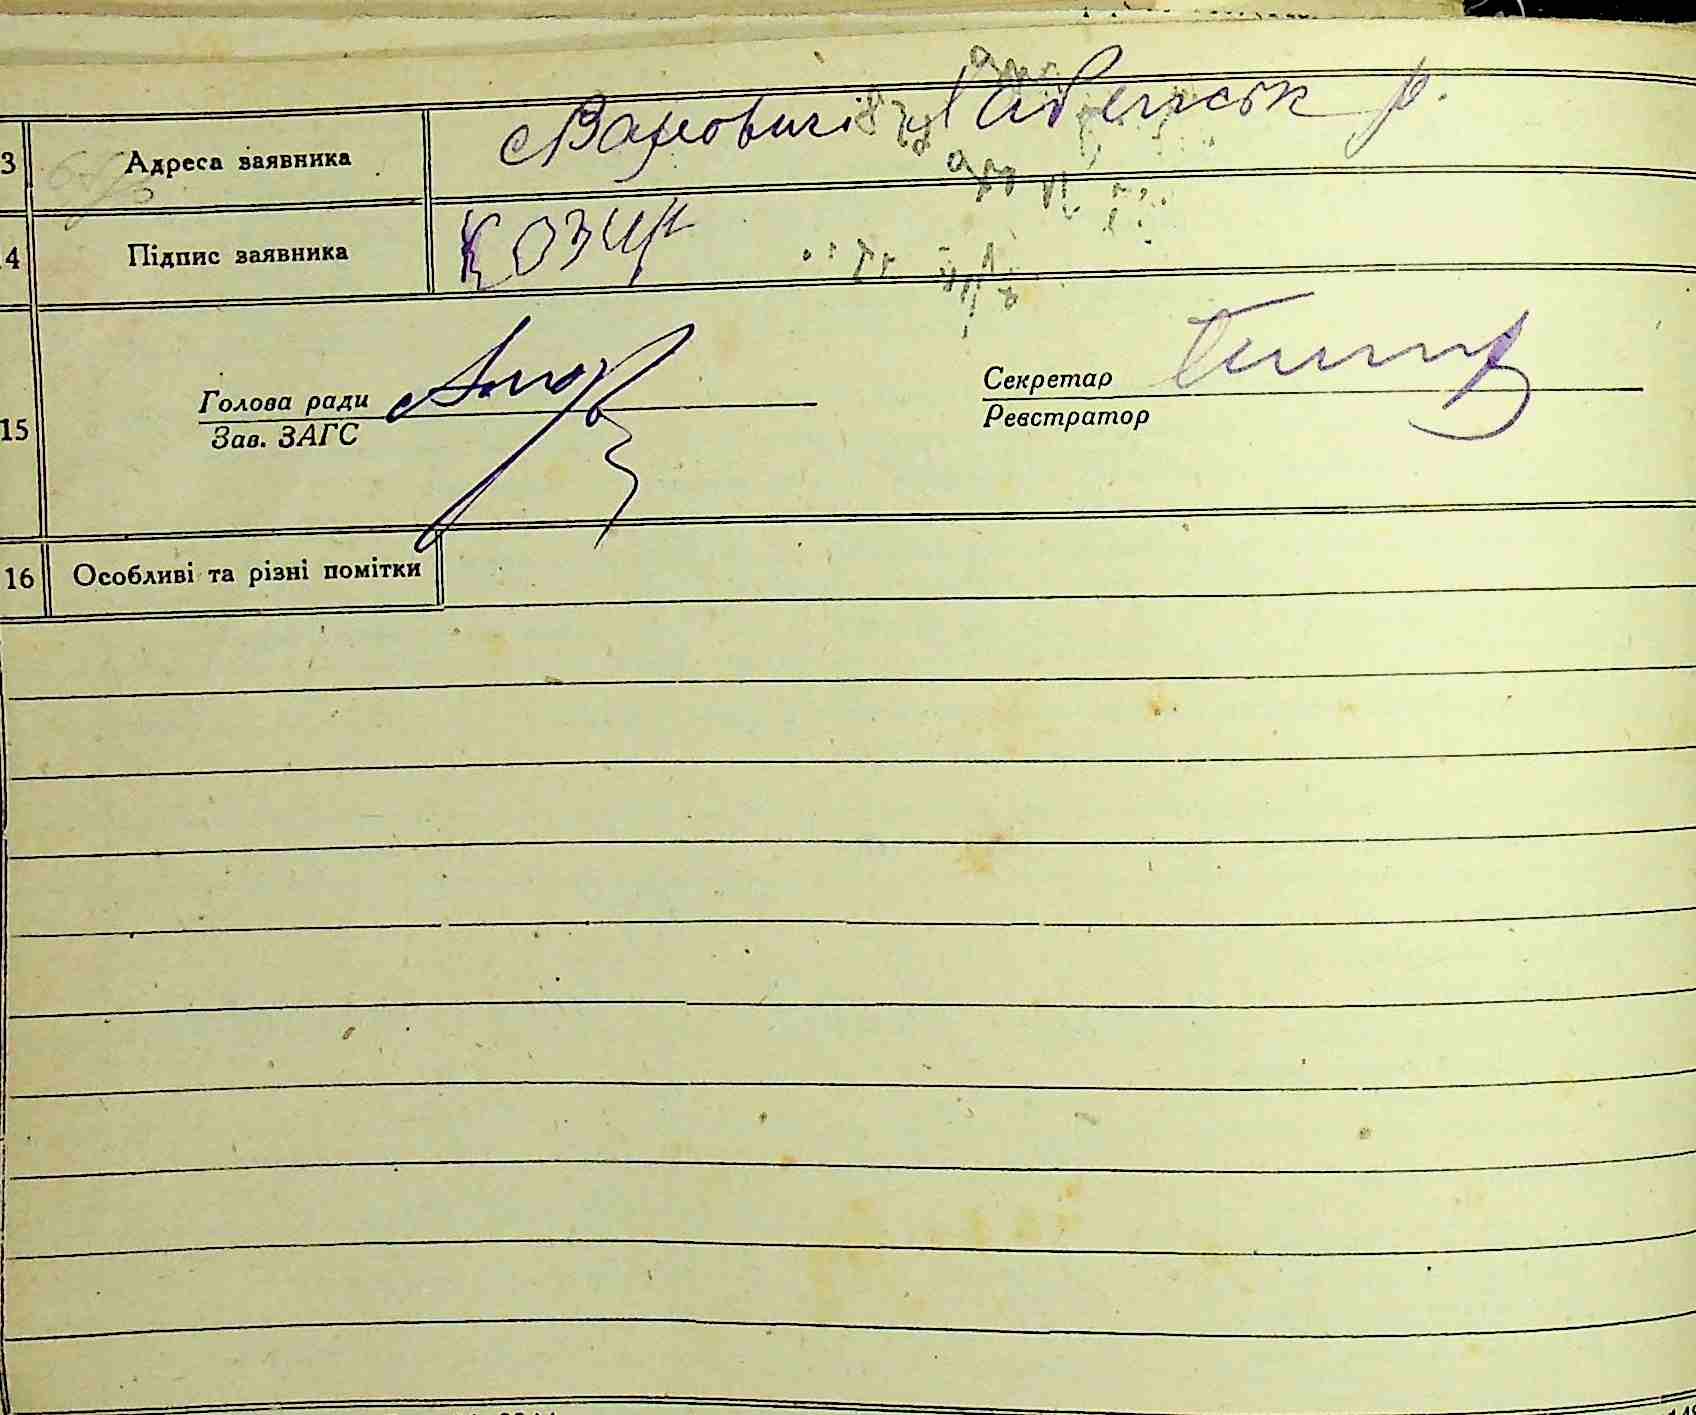 3 Адреса заявника с Варовичі
4 Підпис заявника Кози
15 Голова ради
Зав. ЗАГС
Секретар
Реєстратор
16 Особливі та різні помітки